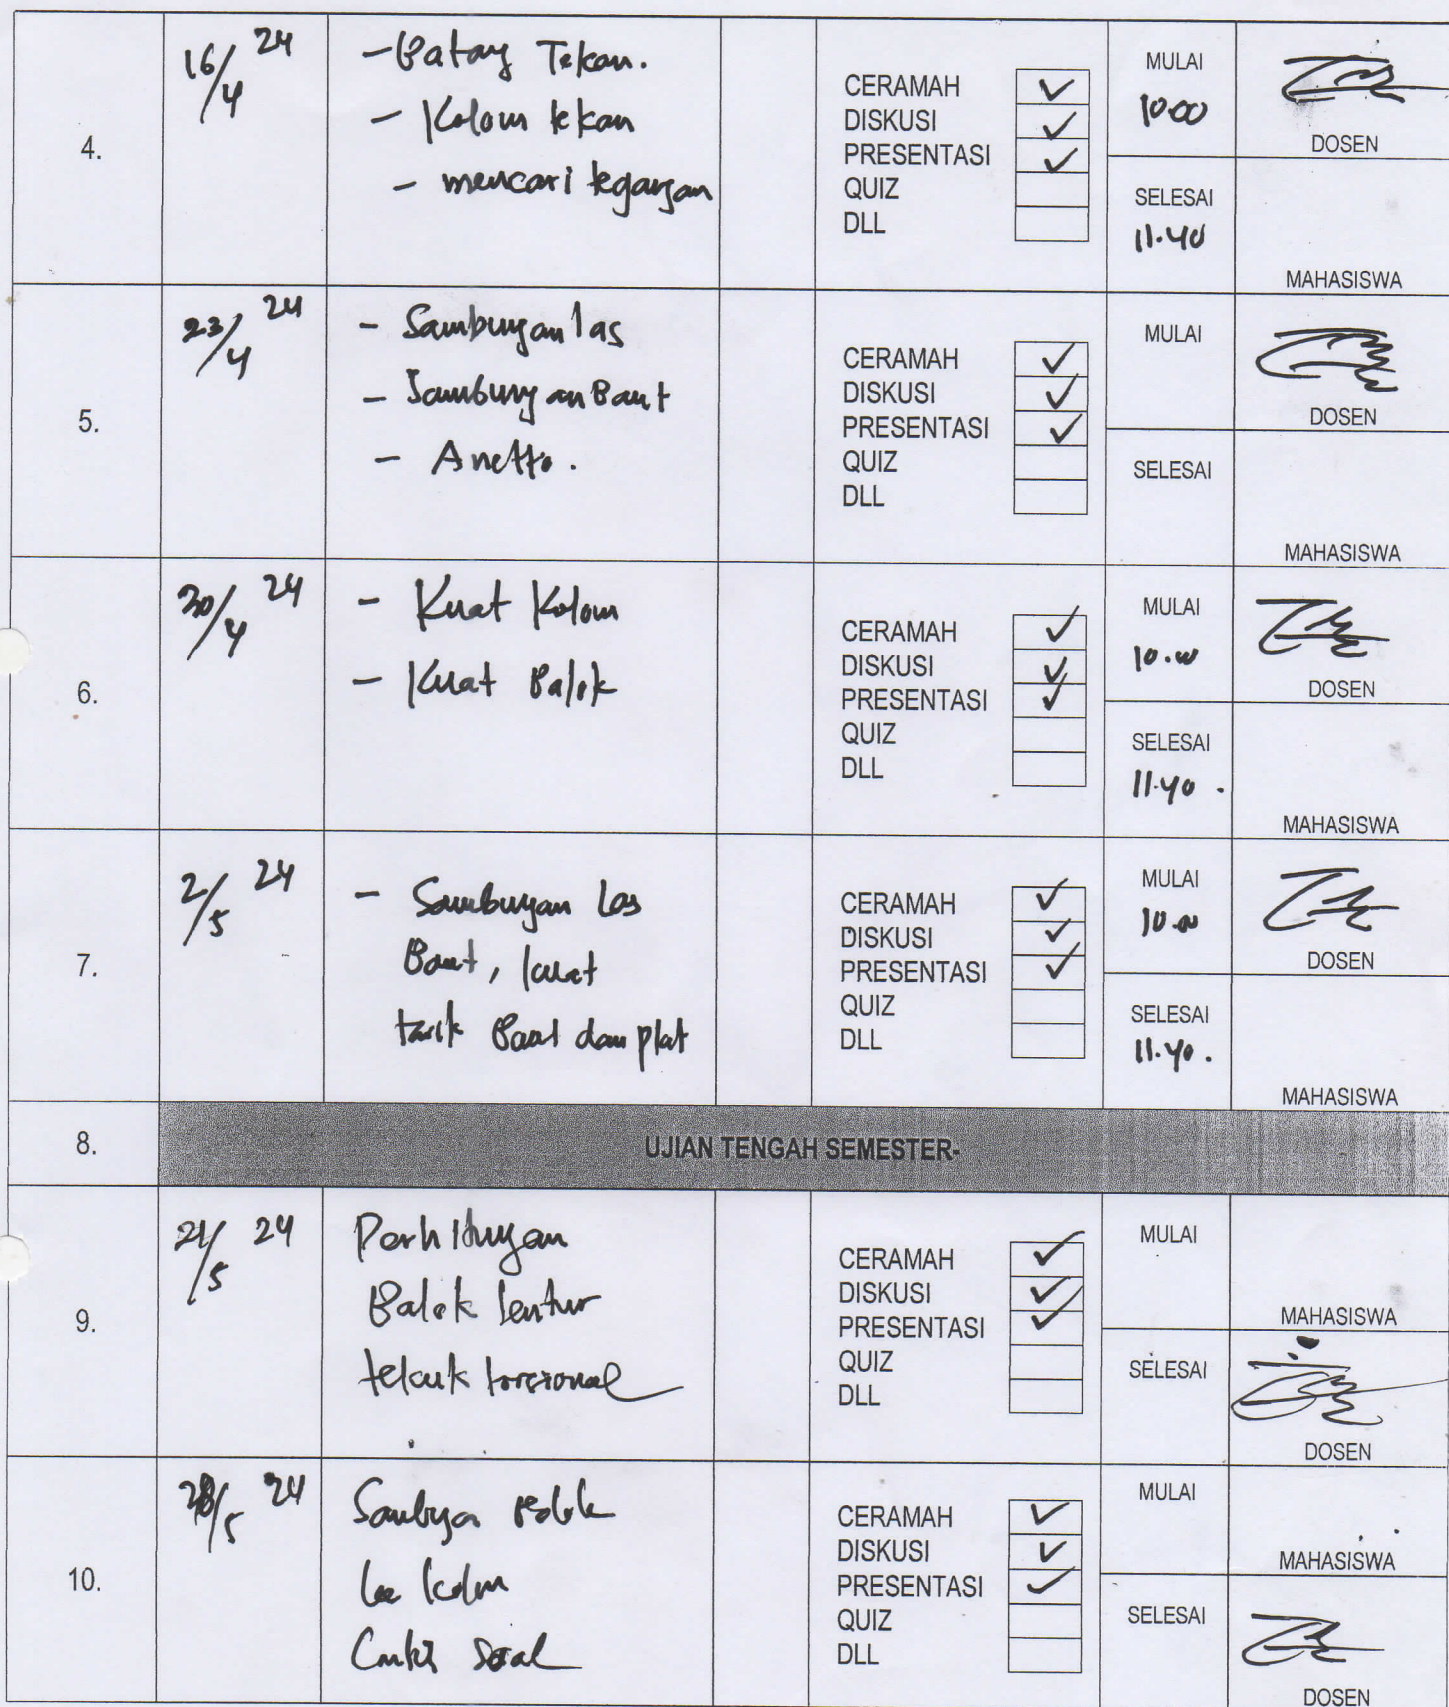 4.
16/4 24
- Batang Tekan.
- Kolom tekan
- mencari tegangan
CERAMAH ✓
DISKUSI ✓
PRESENTASI ✓
QUIZ
DLL
MULAI
10.00
SELESAI
11.40
DOSEN
MAHASISWA
5.
23/4 24
- Sambungan las
- Sambungan Baut
- Anetto.
CERAMAH ✓
DISKUSI ✓
PRESENTASI ✓
QUIZ
DLL
MULAI
SELESAI
DOSEN
MAHASISWA
6.
30/4 24
- Kuat Kolom
- Kuat Balok
CERAMAH ✓
DISKUSI ✓
PRESENTASI ✓
QUIZ
DLL
MULAI
10.00
SELESAI
11.40.
DOSEN
MAHASISWA
7.
2/5 24
- Sambungan Las
Baut, kuat
tarik Baut dan plat
CERAMAH ✓
DISKUSI ✓
PRESENTASI ✓
QUIZ
DLL
MULAI
10.00
SELESAI
11.40.
DOSEN
MAHASISWA
8.
UJIAN TENGAH SEMESTER-
9.
21/5 24
Perhitungan
Balok lentur
tekuk torsional
CERAMAH ✓
DISKUSI ✓
PRESENTASI ✓
QUIZ
DLL
MULAI
MAHASISWA
SELESAI
DOSEN
10.
28/5 24
Sambungan Balok
ke kolom
Contoh soal
CERAMAH ✓
DISKUSI ✓
PRESENTASI ✓
QUIZ
DLL
MULAI
MAHASISWA
SELESAI
DOSEN